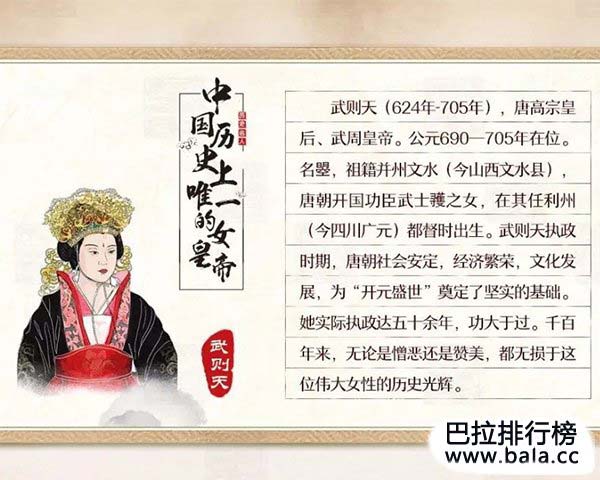 中国历史上
唯一的女皇帝
武则天
武则天（624年-705年），唐高宗皇
后、武周皇帝。公元690—705年在位。
名曌，祖籍并州文水（今山西文水县），
唐朝开国功臣武士彟之女，在其任利州
（今四川广元）都督时出生。武则天执政
时期，唐朝社会安定，经济繁荣，文化发
展，为“开元盛世”奠定了坚实的基础。
她实际执政达五十余年，功大于过。千百
年来，无论是憎恶还是赞美，都无损于这
位伟大女性的历史光辉。
巴拉排行榜
www.bala.cc